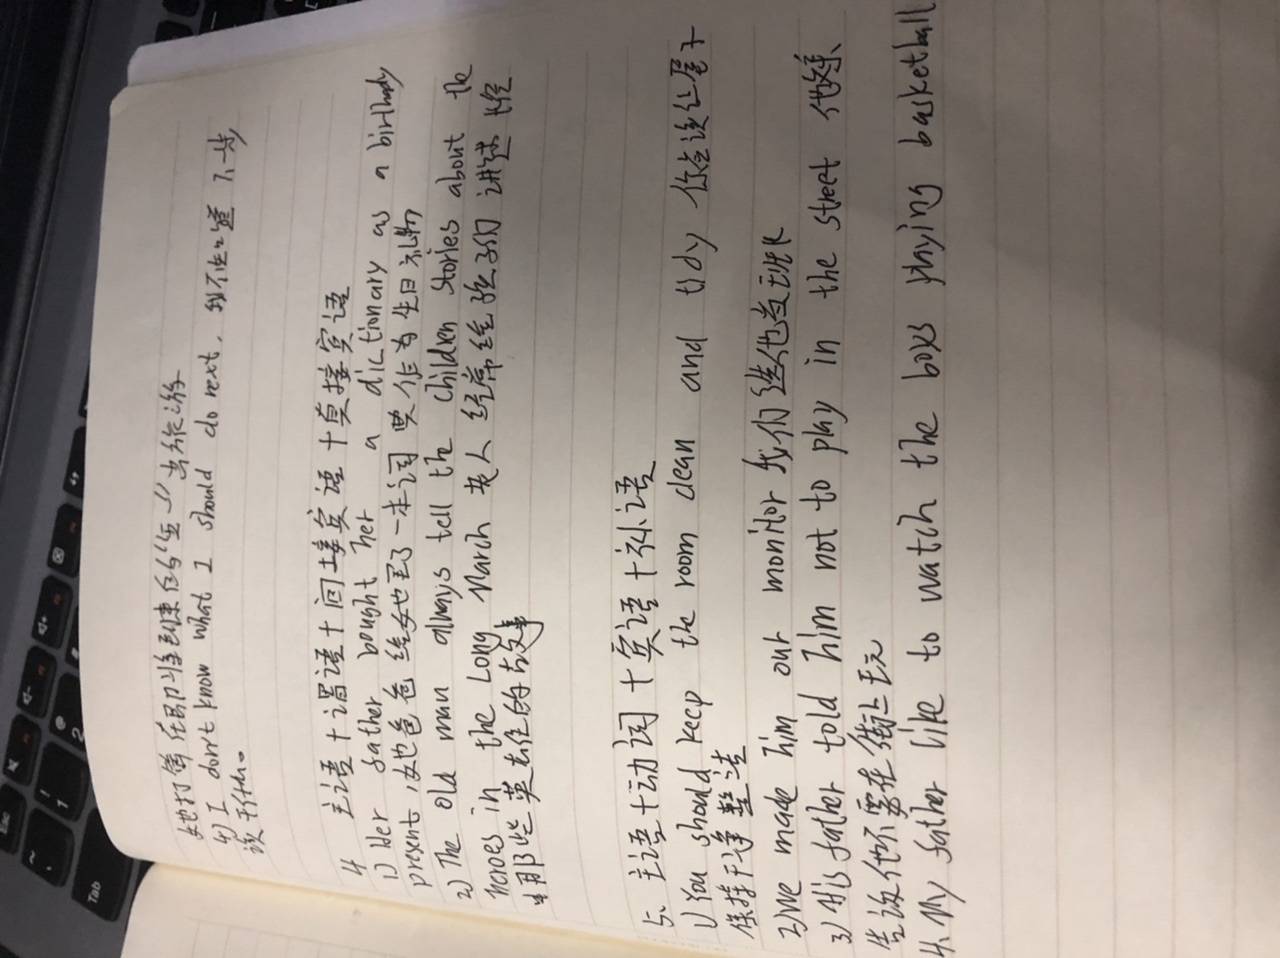 她打算在即将到来的"五一"去旅游
4) I don't know what I should do next. 我不知道下一步
该干什么。
4 主语十谓语十间接宾语十直接宾语
1) Her father bought her a dictionary as a birthday
present, 她爸爸给她买了一本词典作为生日礼物
2) The old man always tell the children stories about the
heroes in the Long March 老人经常给孩子们讲述长征
中那些英雄的故事
5、主语十动词十宾语十补语
1) You should keep the room clean and tidy 你应该让屋子
保持干净整洁
2) We made him our monitor 我们选他为班长
3) His father told him not to play in the street 他父亲
告诉他不要在街上玩
4. My father like to watch the boys playing basketball